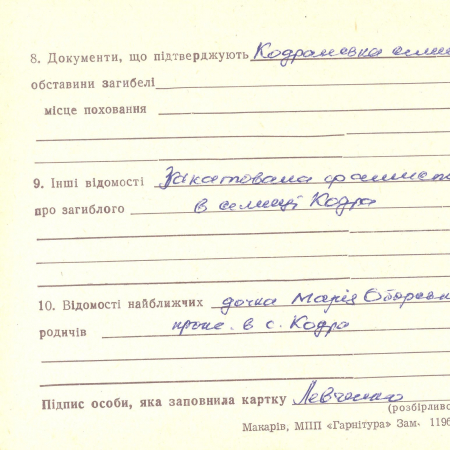 8. Документи, що підтверджують Кодранська селищ
обставини загибелі
місце поховання
9. Інші відомості Закатована фашиста
про загиблого в селищі Кодра
10. Відомості найближчих дочка Марія
родичів прож. в с. Кодра
Підпис особи, яка заповнила картку Левченко
(розбірливо
Макарів, МПП «Гарнітура» Зам. 1196